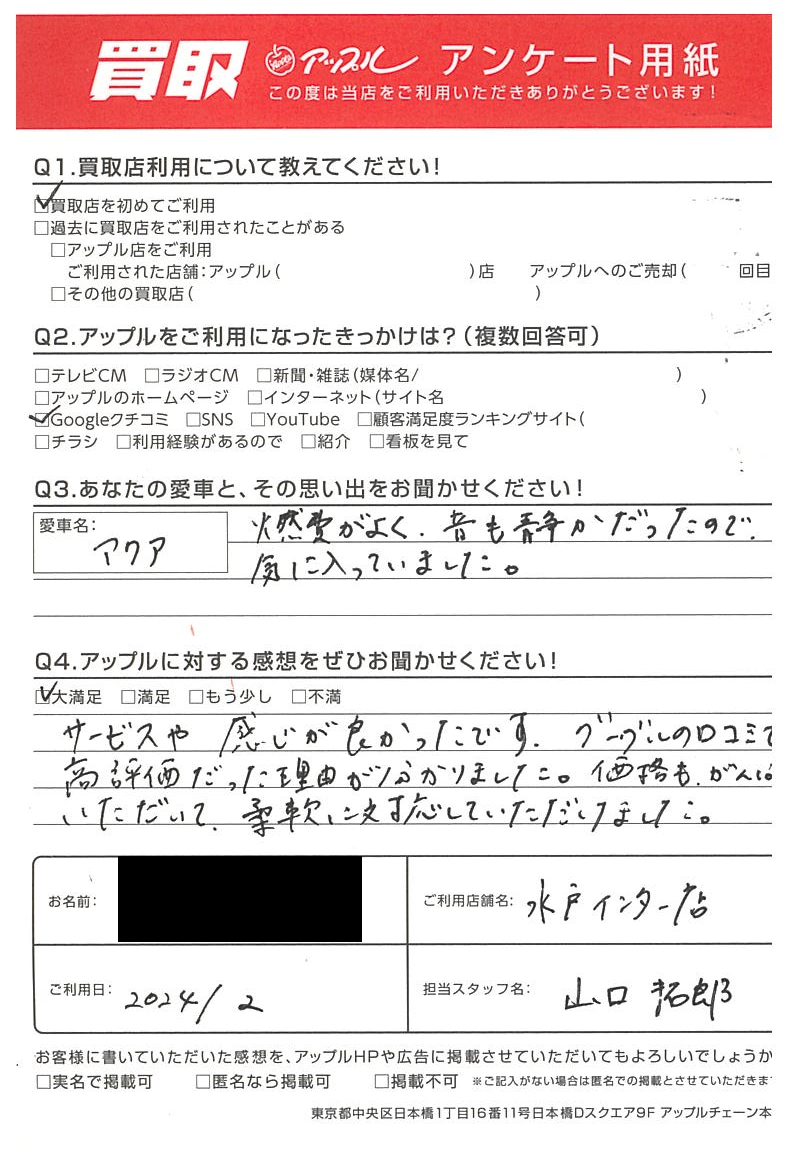 買取 アップル アンケート用紙
この度は当店をご利用いただきありがとうございます!
Q1.買取店利用について教えてください!
☑買取店を初めてご利用
□過去に買取店をご利用されたことがある
□アップル店をご利用
ご利用された店舗:アップル( )店 アップルへのご売却( 回目
□その他の買取店( )
Q2.アップルをご利用になったきっかけは?(複数回答可)
□テレビCM □ラジオCM □新聞・雑誌(媒体名/ )
□アップルのホームページ □インターネット(サイト名 )
☑Googleクチコミ □SNS □YouTube □顧客満足度ランキングサイト(
□チラシ □利用経験があるので □紹介 □看板を見て
Q3.あなたの愛車と、その思い出をお聞かせください!
愛車名: アクア
燃費がよく、音も静かだったので、
気に入っていました。
Q4.アップルに対する感想をぜひお聞かせください!
☑大満足 □満足 □もう少し □不満
サービスや 感じが良かったです。グーグルの口コミで
高評価だった理由が分かりました。価格も、がんば
いただいて、柔軟に対応していただけました。
お名前:
ご利用店舗名: 水戸インター店
ご利用日: 2024/2
担当スタッフ名: 山口 拓郎
お客様に書いていただいた感想を、アップルHPや広告に掲載させていただいてもよろしいでしょうか
□実名で掲載可 □匿名なら掲載可 □掲載不可 ※ご記入がない場合は匿名での掲載とさせていただきま
東京都中央区日本橋1丁目16番11号日本橋Dスクエア9F アップルチェーン本